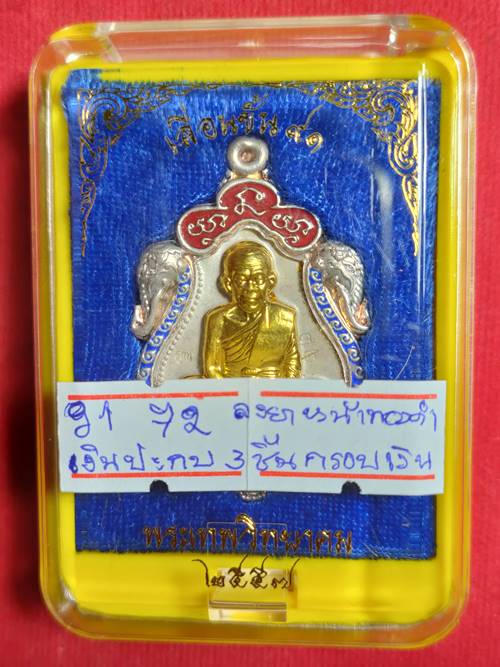 เลื่อนขึ้น ๙๑
ว1 ว2 ลงยาหน้าทองคำ
เงินประกบ 3 ชิ้นกรอบเงิน
พระเทพวิทยาคม
๒๕๕๗